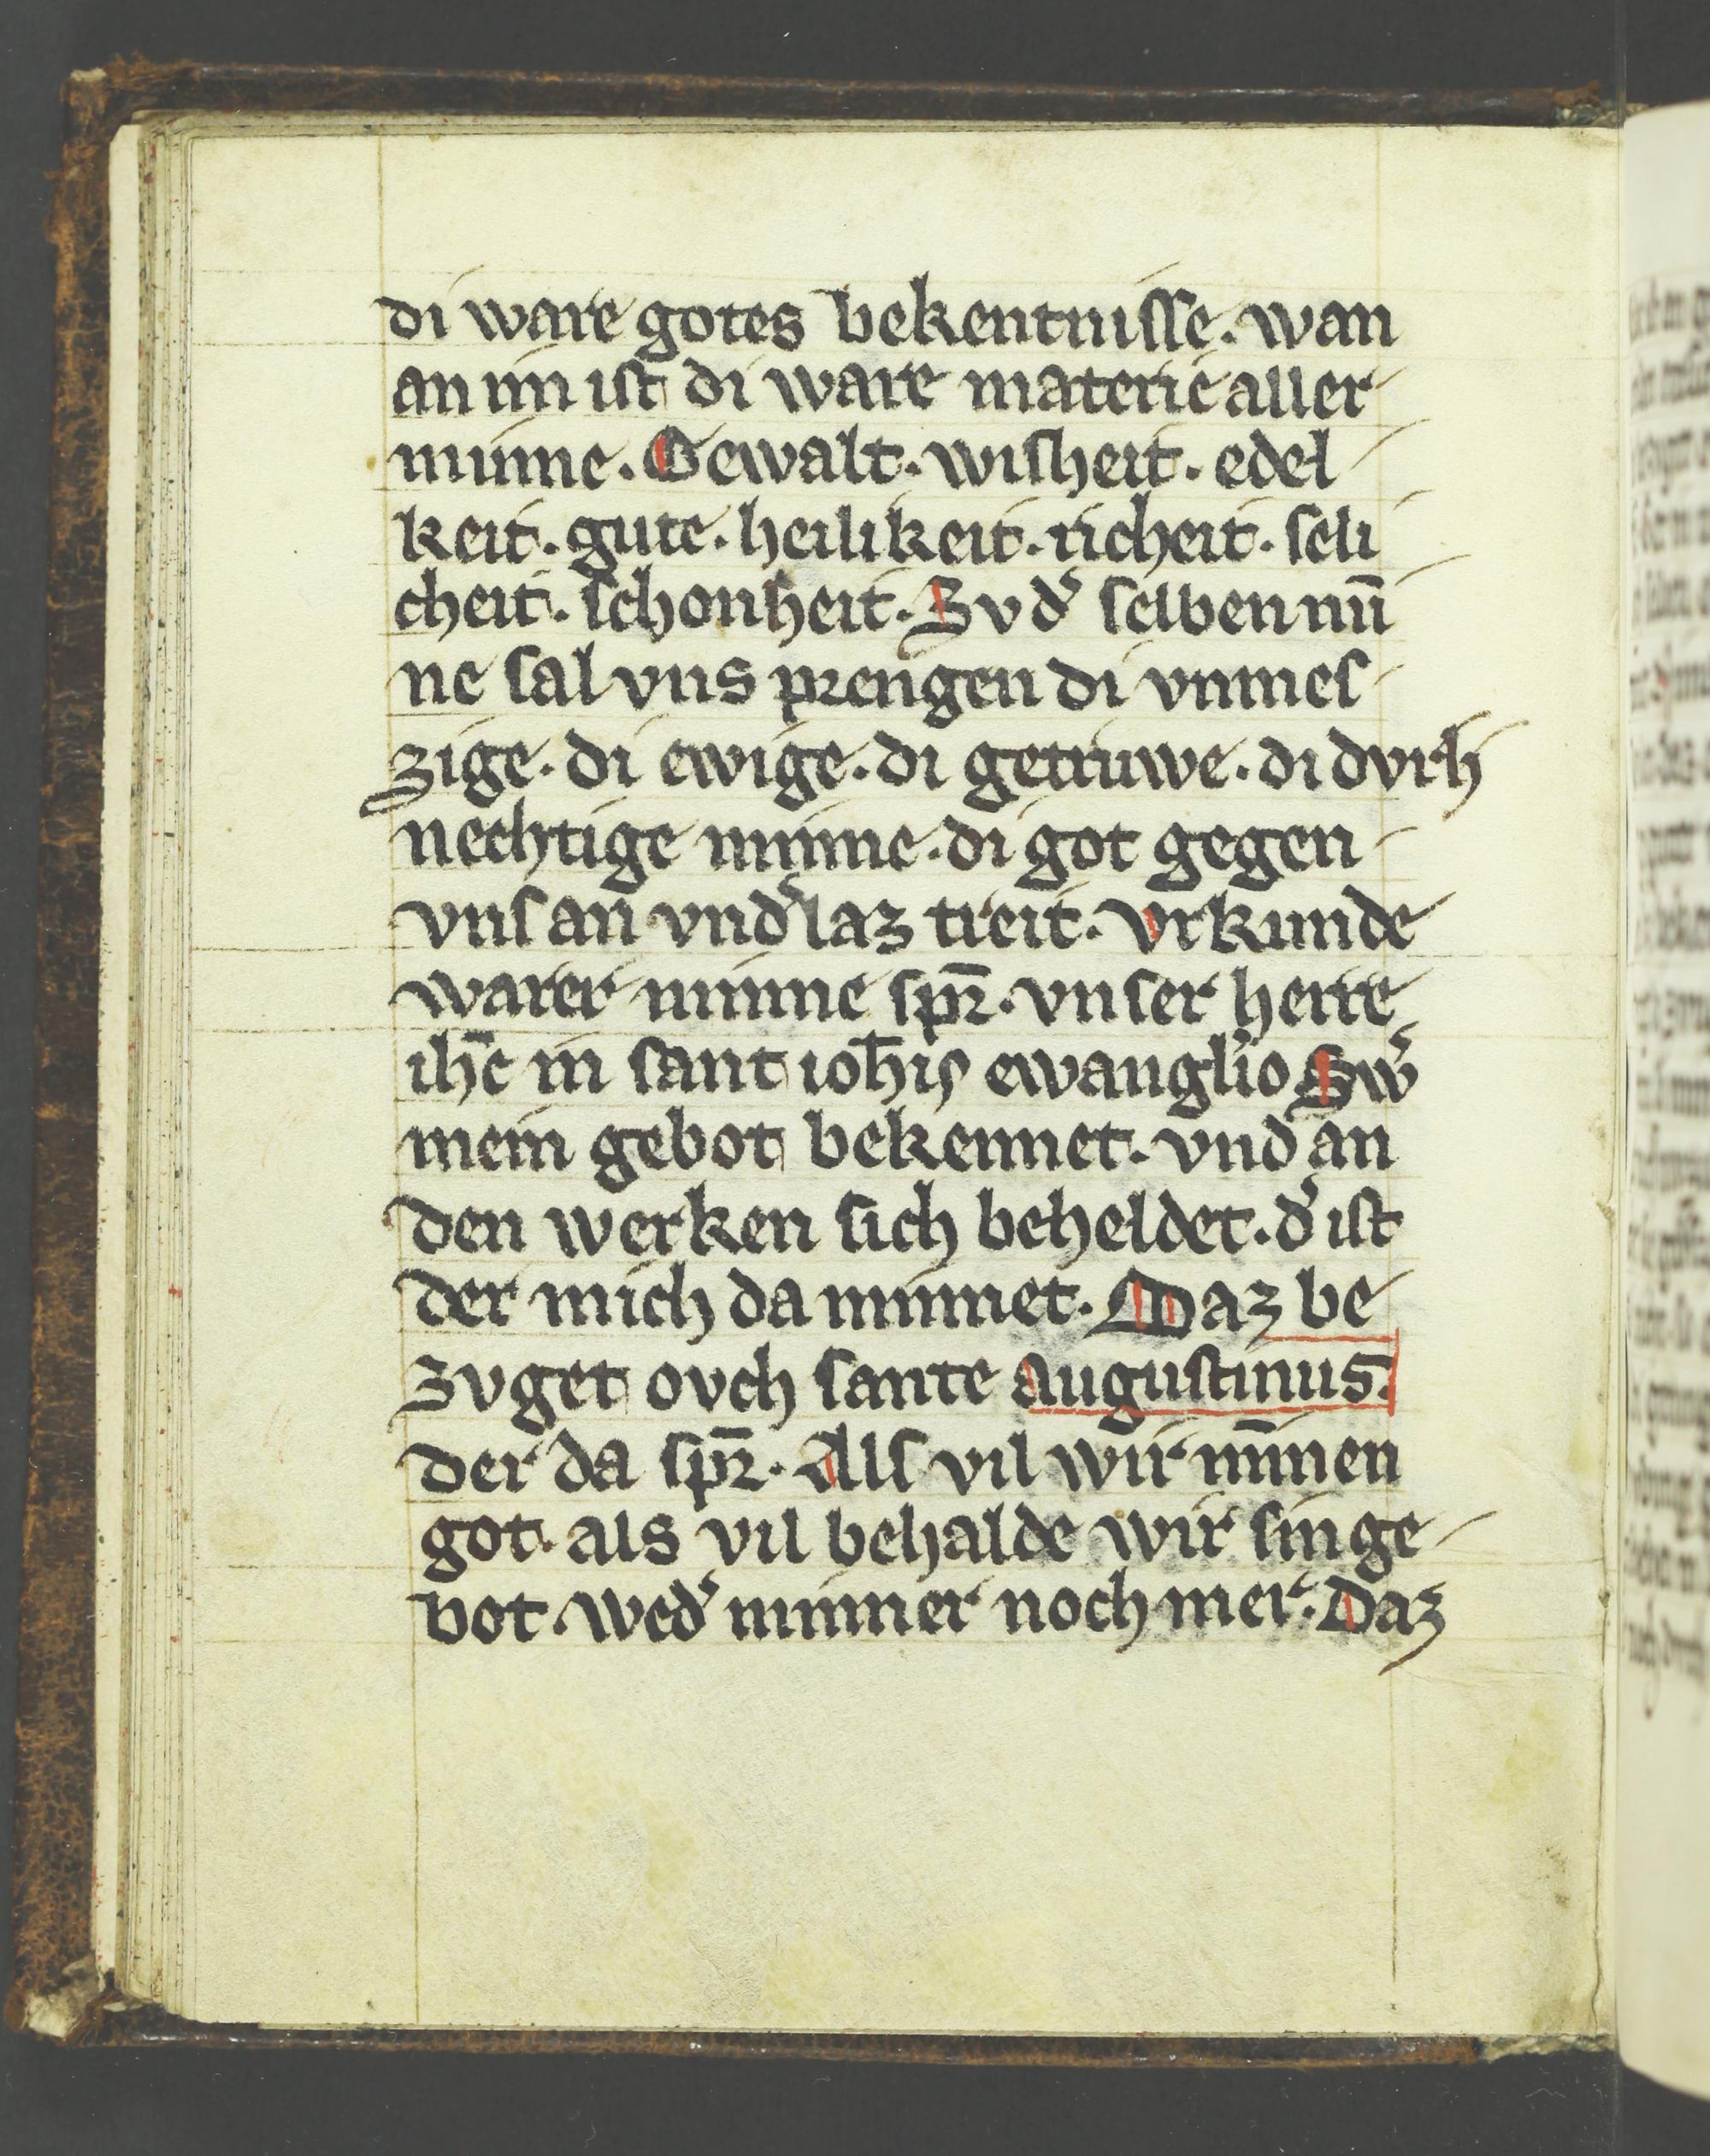 di ware gotes bekentnisse. wan
an im ist di ware materie aller
minne. Gewalt. wisheit. edel
keit. gute. heilikeit. richeit. seli
cheit. schonheit. Zv dˀ selben min̄
ne sal vns prengen di vnmes
zige. di ewige. di getriuwe. di dvrh
nechtige minne. di got gegen
vns an vndˀlaz treit. Vrkunde
warer minne spr̄. vnser herre
ihc̄ in sant ioh̄is ewanglˀio Swˀ
mein gebot bekennet. vnd an
den werken sich beheldet. dˀ ist
der mich da minnet. Daz be
zvget ovch sante Augustinus.
der da spr̄. Als vil wir min̄nen
got. als vil behalde wir sin ge
bot. wedˀ minner noch mer. Daz